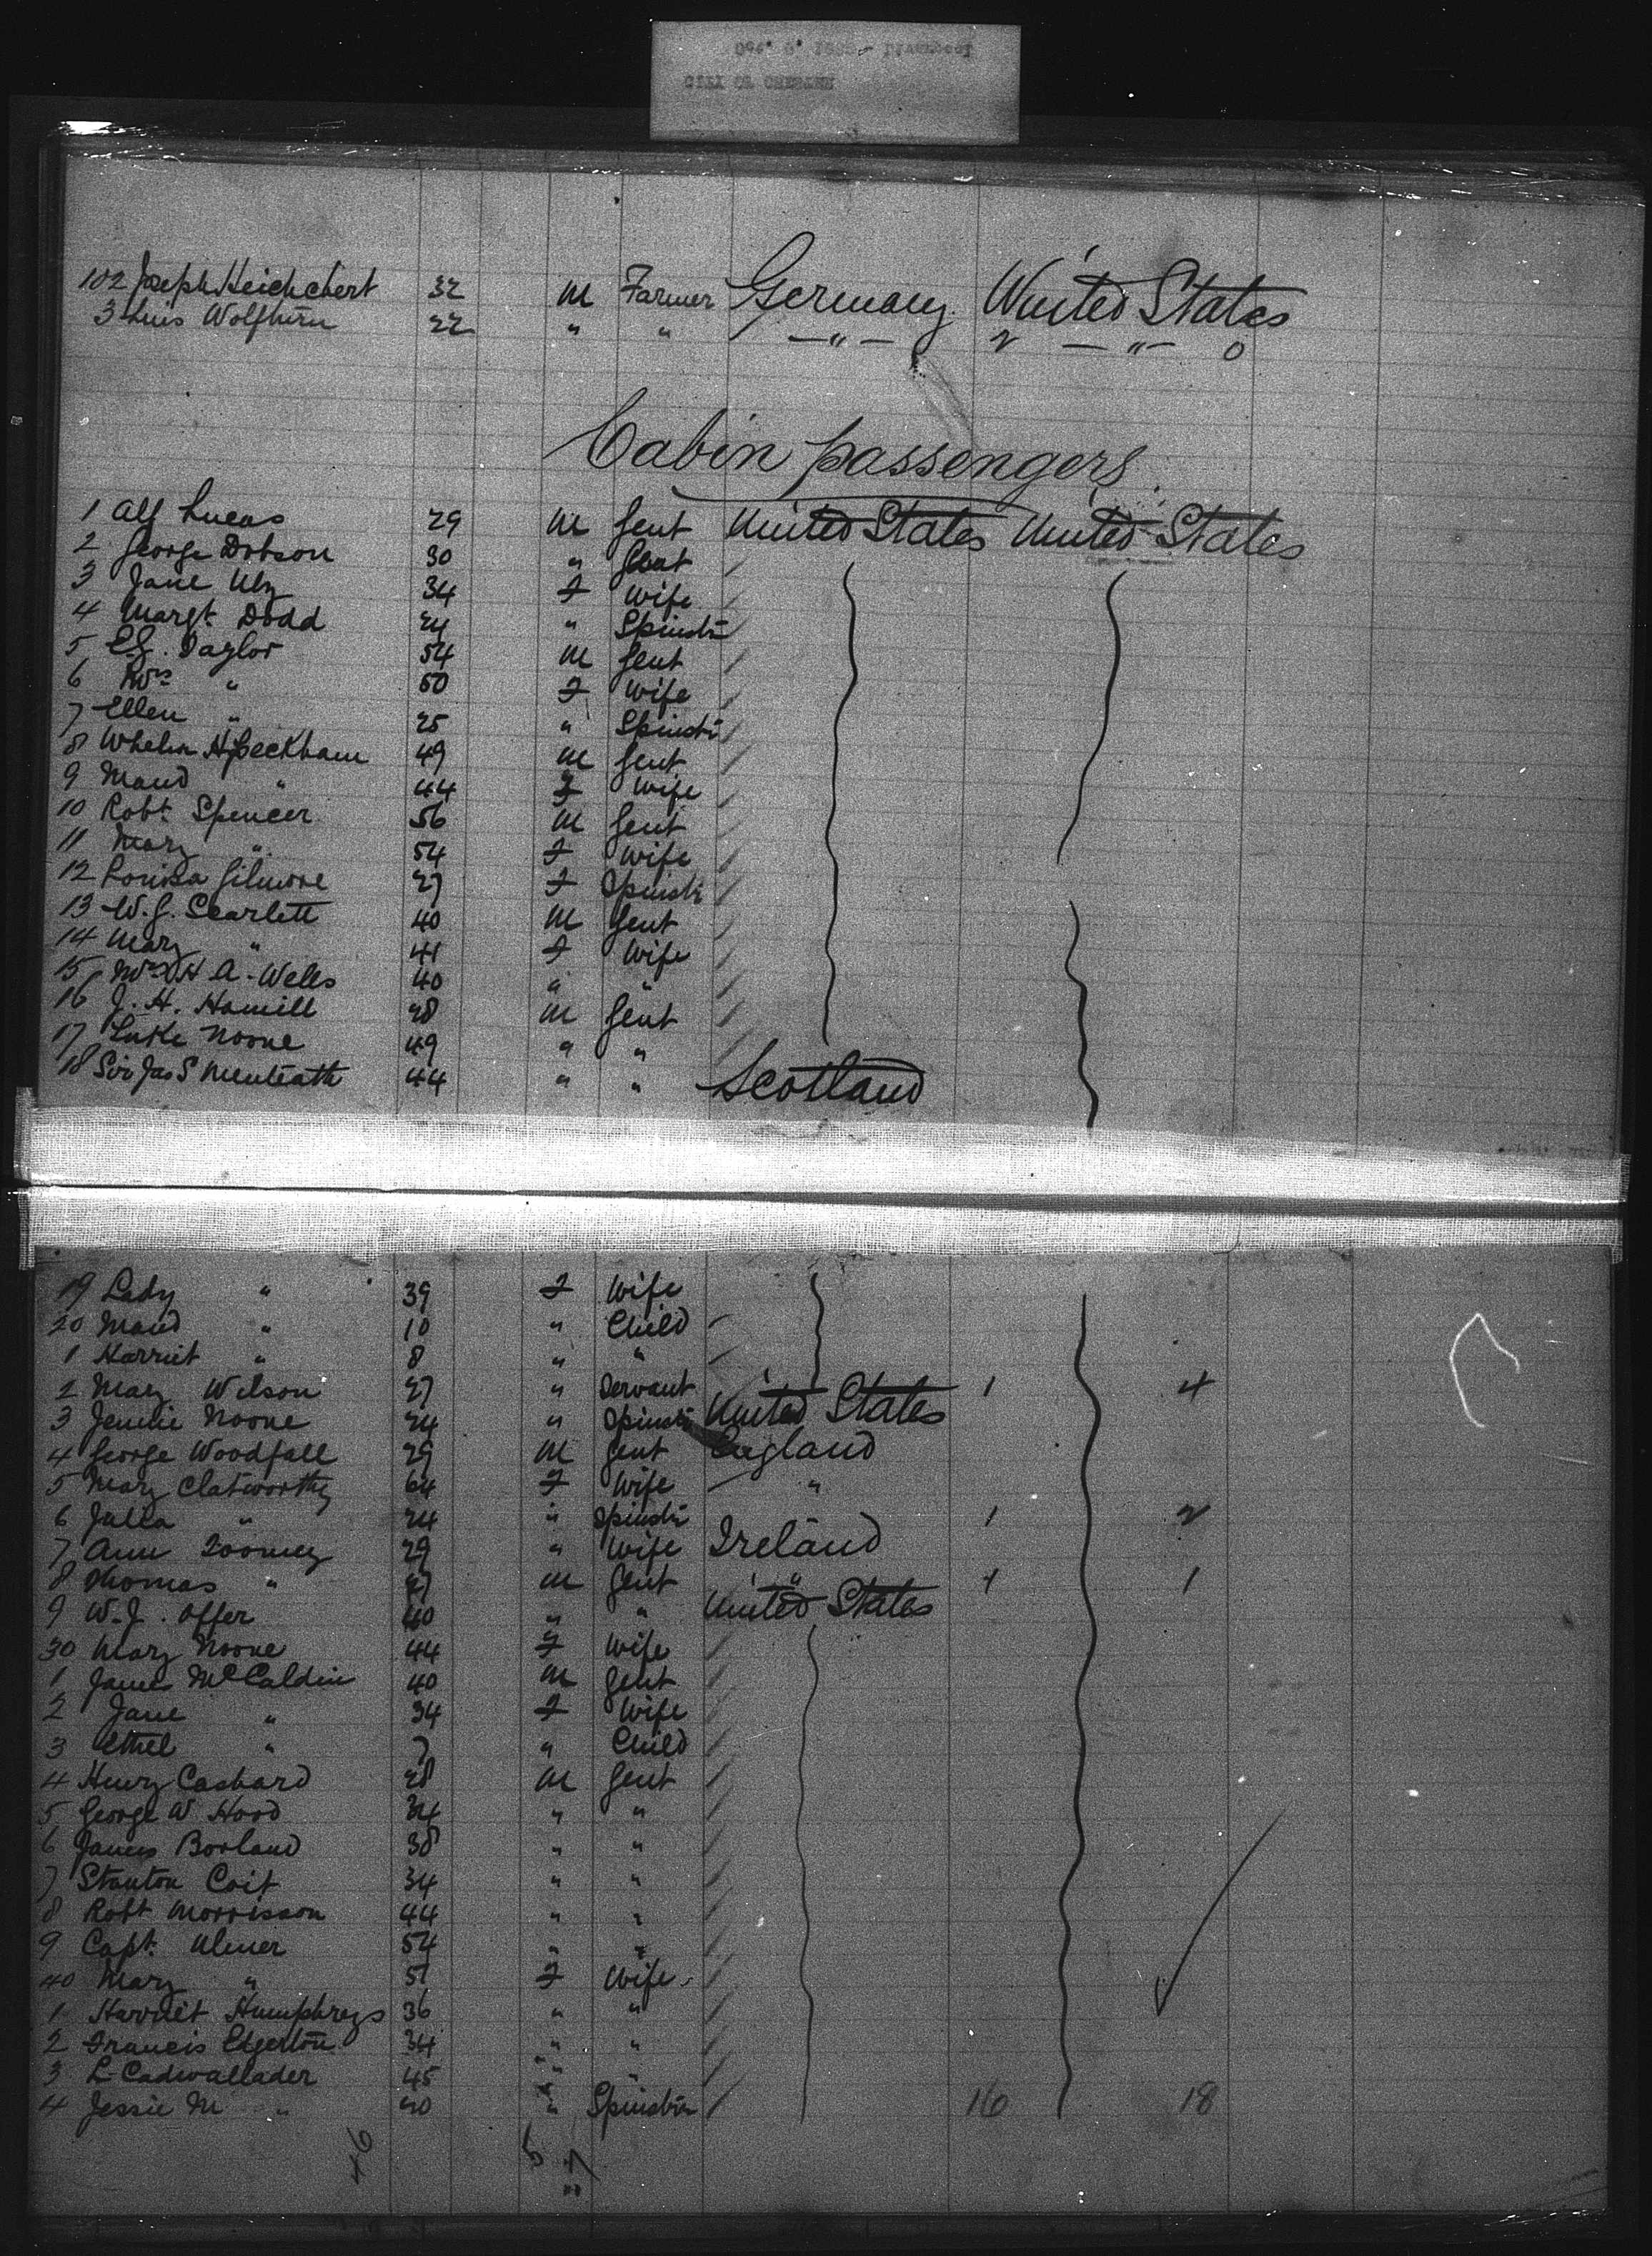 Oct. 6, 188 - Liverpool
CITY OF CHESTER
102 Joseph Heichchert 32 M Farmer Germany United States
3 Luis Wolfhurn 22 " " — " — 2 — " — 0
Cabin passengers
1 Alf Lucas 29 M Gent United States United States
2 George Dobson 30 " Gent
3 Jane Uly 34 F Wife
4 Margt. Dodd 24 " Spinstr
5 E.G. Taylor 54 M Gent
6 Mrs " 50 F Wife
7 Ellen " 25 " Spinstr
8 H Peckham 49 M Gent
9 Maud " 44 F Wife
10 Robt. Spencer 56 M Gent
11 Mary " 54 F Wife
12 Louisa Gilmore 27 F Spinstr
13 W.G. Scarlett 40 M Gent
14 Mary " 41 F Wife
15 Mrs H A. Wells 40 " "
16 J. H. Hamill 28 M Gent
17 Luke Noone 49 " "
18 Sir Jas S Menteath 44 " " Scotland
19 Lady " 39 F Wife
20 Maud " 10 " Child
1 Harriet " 8 " "
2 Mary Wilson 27 " Servant 1 4
3 Jennie Noone 24 " Spinstr United States
4 George Woodfall 29 M Gent England
5 Mary Clatworthy 64 F Wife "
6 Julia " 24 " Spinstr 1 2
7 Ann Toomey 29 " Wife Ireland
8 Thomas " 27 M Gent " 1 1
9 W.J. Offer 40 " " United States
30 Mary Noone 44 F Wife
1 James McCaldin 40 M Gent
2 Jane " 34 F Wife
3 Ethel " 7 " Child
4 Henry Cashard 28 M Gent
5 George W Hood 34 " "
6 James Borland 38 " "
7 Stanton Coit 34 " "
8 Robt Morrisson 44 " "
9 Capt. Ulmer 54 " "
40 Mary " 51 F Wife
1 Harriet Humphreys 36 " "
2 Francis Edgerton 34 " "
3 L Cadwallader 45 " "
4 Jessie M " 20 " Spinstr 16 18
46 5